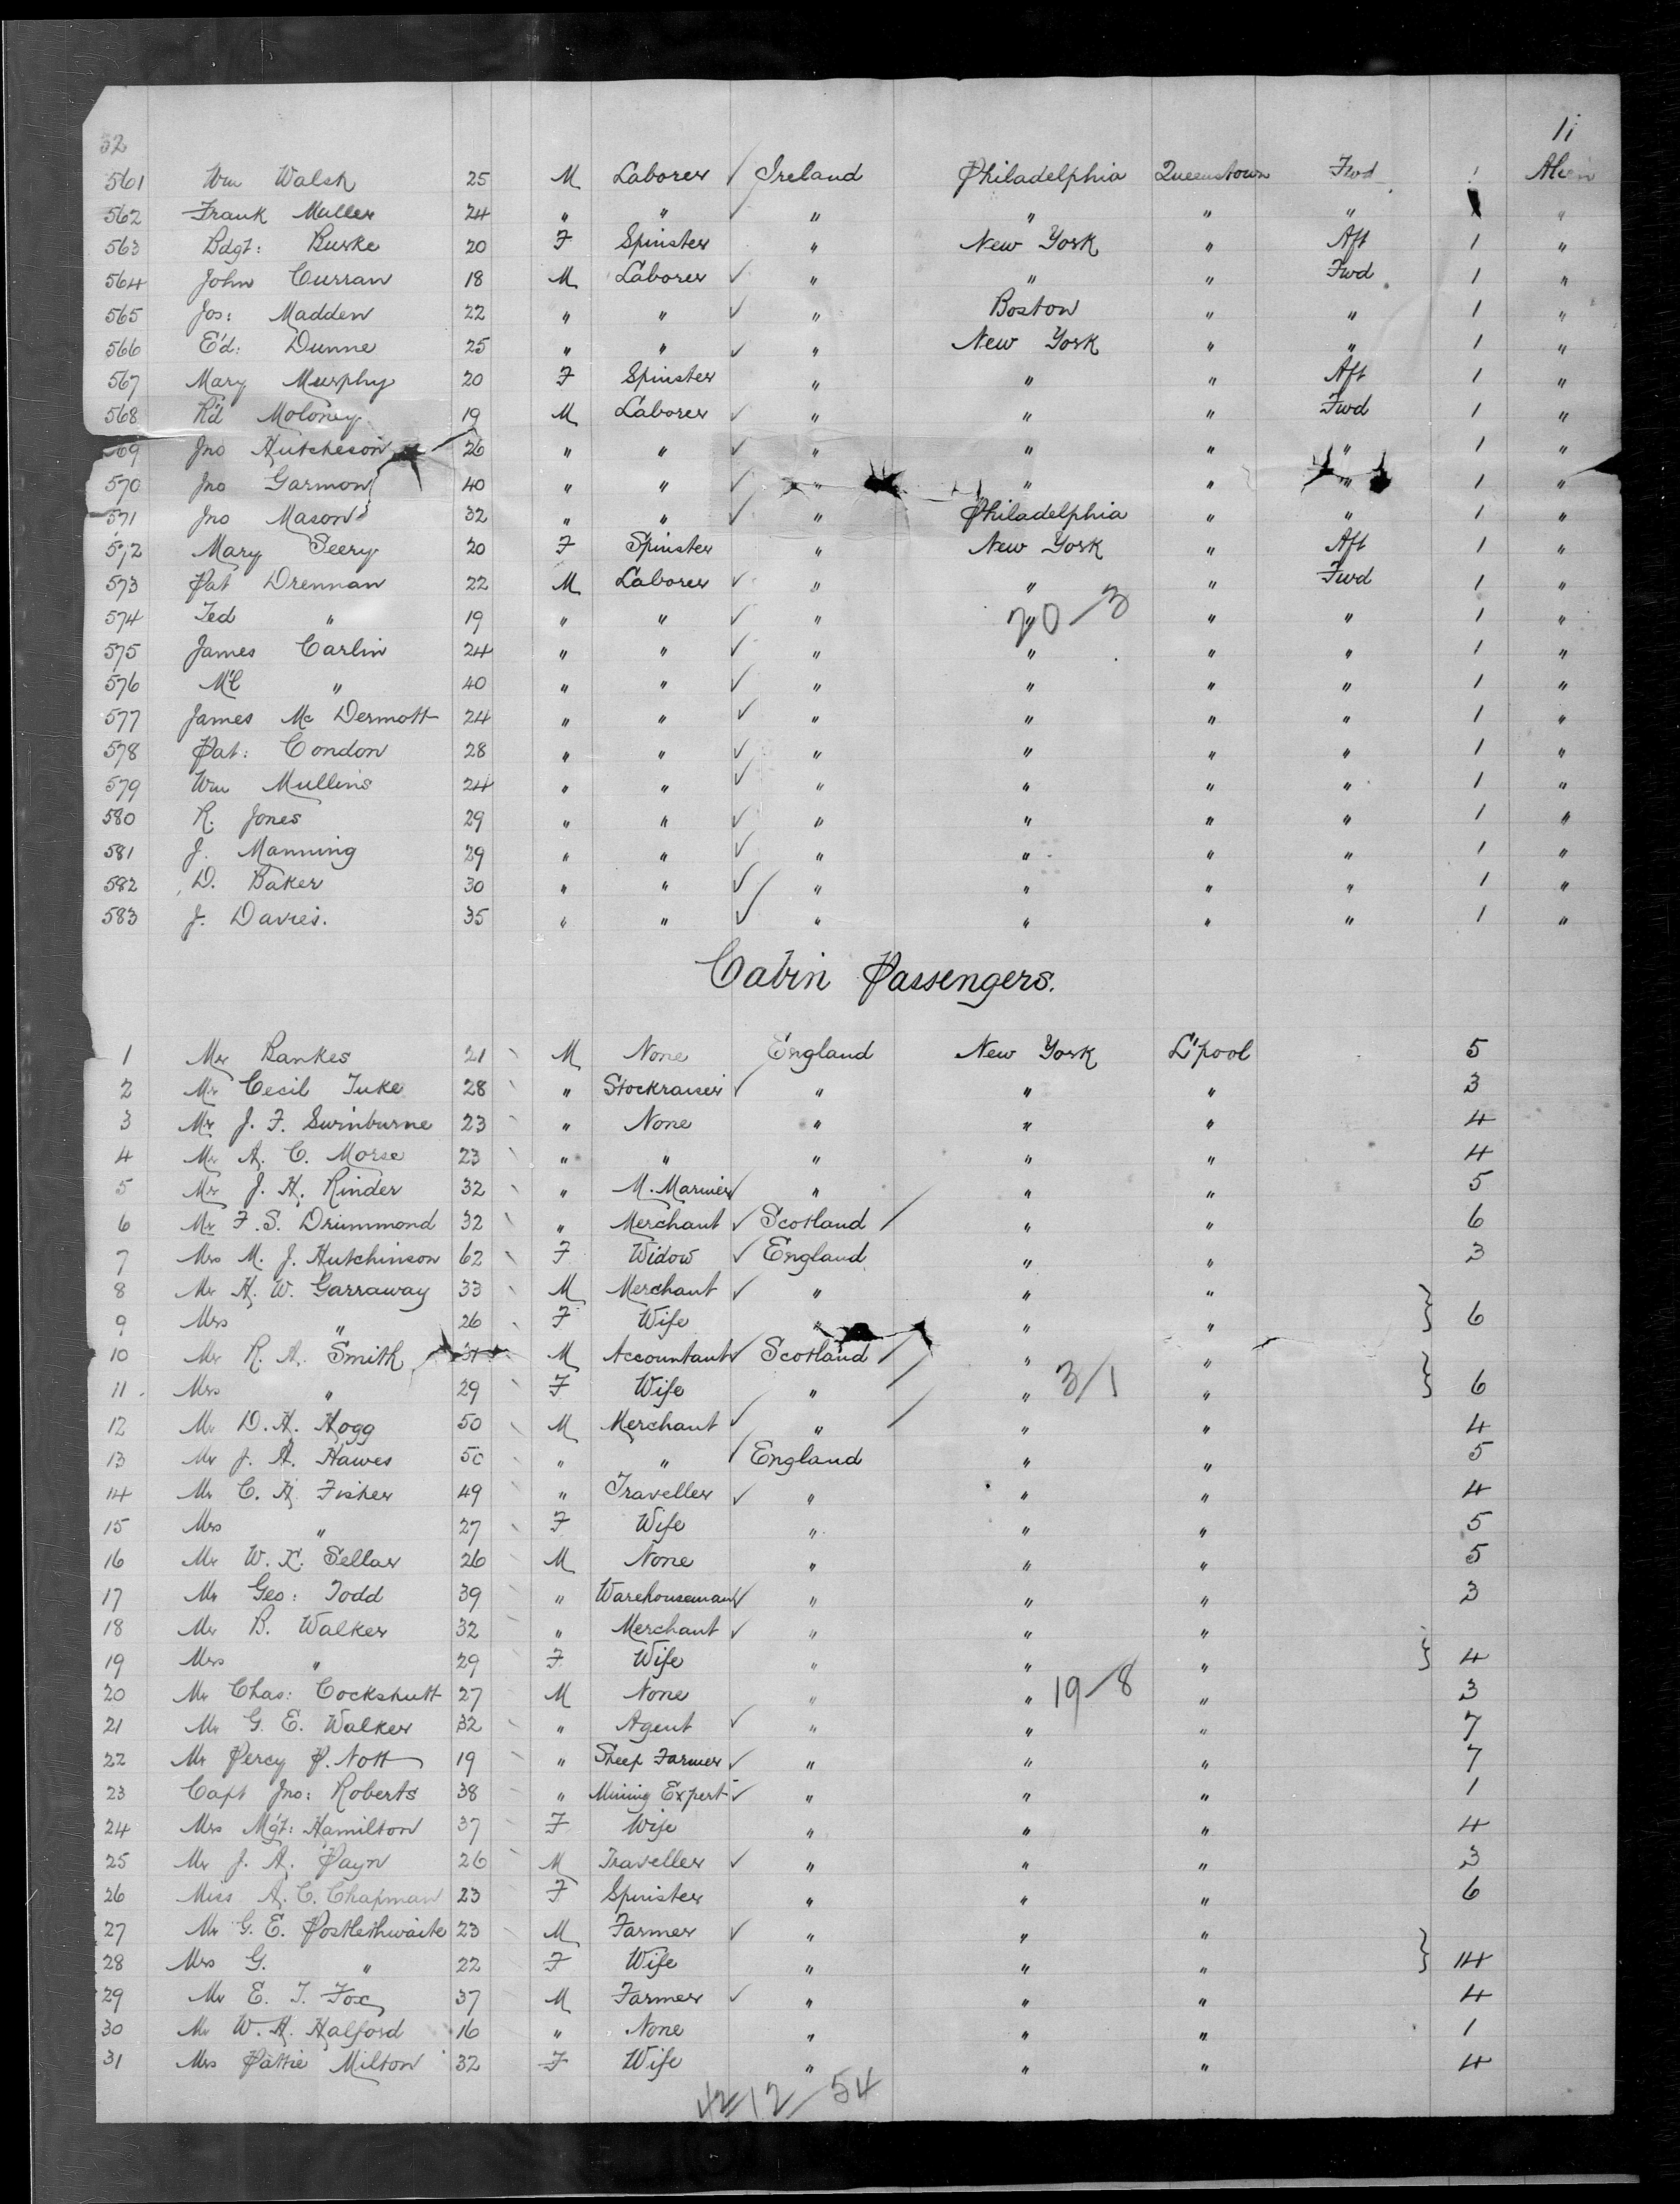 32 11
561 Wm Walsh 25 M Laborer ✓ Ireland Philadelphia Queenstown Fwd 1 Alien
562 Frank Muller 24 " " ✓ " " " " 1 "
563 Bdgt: Burke 20 F Spinster " New York " Aft 1 "
564 John Curran 18 M Laborer ✓ " " " Fwd 1 "
565 Jos: Madden 22 " " ✓ " Boston " " 1 "
566 E'd: Dunne 25 " " ✓ " New York " " 1 "
567 Mary Murphy 20 F Spinster " " " Aft 1 "
568 R'd Moloney 19 M Laborer ✓ " " " Fwd 1 "
69 Jno Hutcheson 26 " " ✓ " " " " 1 "
570 Jno Garmon 40 " " ✓ " " " " 1 "
571 Jno Mason 32 " " ✓ " Philadelphia " " 1 "
572 Mary Seery 20 F Spinster " New York " Aft 1 "
573 Pat Drennan 22 M Laborer ✓ " " " Fwd 1 "
574 Ted " 19 " " ✓ " " 20-3 " " 1 "
575 James Carlin 24 " " ✓ " " " " 1 "
576 Ml " 40 " " ✓ " " " " 1 "
577 James Mc Dermott 24 " " ✓ " " " " 1 "
578 Pat: Condon 28 " " ✓ " " " " 1 "
579 Wm Mullins 24 " " ✓ " " " " 1 "
580 R. Jones 29 " " ✓ " " " " 1 "
581 J. Manning 29 " " ✓ " " " " 1 "
582 D. Baker 30 " " ✓ " " " " 1 "
583 J. Davies. 35 " " ✓ " " " " 1 "
Cabin Passengers.
1 Mr Bankes 21 M None England New York L'pool 5
2 Mr Cecil Tuke 28 " Stockraiser ✓ " " " 3
3 Mr J. F. Swinburne 23 " None " " " 4
4 Mr A. C. Morse 23 " " " " " 4
5 Mr J. H. Rinder 32 " M. Marmer ✓ " " " 5
6 Mr F. S. Drummond 32 " Merchant ✓ Scotland " " 6
7 Mrs M. J. Hutchinson 62 F Widow ✓ England " " 3
8 Mr H. W. Garraway 33 M Merchant ✓ " " "
9 Mrs " 26 F Wife " " " } 6
10 Mr R. A. Smith 31 M Accountant ✓ Scotland " "
11 Mrs " 29 F Wife " " 3/1 " } 6
12 Mr D. H. Hogg 50 M Merchant ✓ " " " 4
13 Mr J. A. Hawes 50 " " ✓ England " " 5
14 Mr C. H. Fisher 49 " Traveller ✓ " " " 4
15 Mrs " 27 F Wife " " " 5
16 Mr W. K. Sellar 26 M None " " " 5
17 Mr Geo: Todd 39 " Warehouseman ✓ " " " 3
18 Mr B. Walker 32 " Merchant ✓ " " "
19 Mrs " 29 F Wife " " " } 4
20 Mr Chas: Cockshutt 27 M None " " 19-8 " 3
21 Mr G. E. Walker 32 " Agent ✓ " " " 7
22 Mr Percy P. Nott 19 " Sheep Farmer ✓ " " " 7
23 Capt Jno: Roberts 38 " Mining Expert ✓ " " " 1
24 Mrs Mgt: Hamilton 37 F Wife " " " 4
25 Mr J. A. Payn 26 M Traveller ✓ " " " 3
26 Miss A. C. Chapman 23 F Spinster " " " 6
27 Mr G. E. Postlethwaite 23 M Farmer ✓ " " "
28 Mrs G. " 22 F Wife " " " } 14
29 Mr E. T. Fox 37 M Farmer ✓ " " " 4
30 Mr W. H. Halford 16 " None " " " 1
31 Mrs Pattie Milton 32 F Wife " " " 4
42 12 / 54